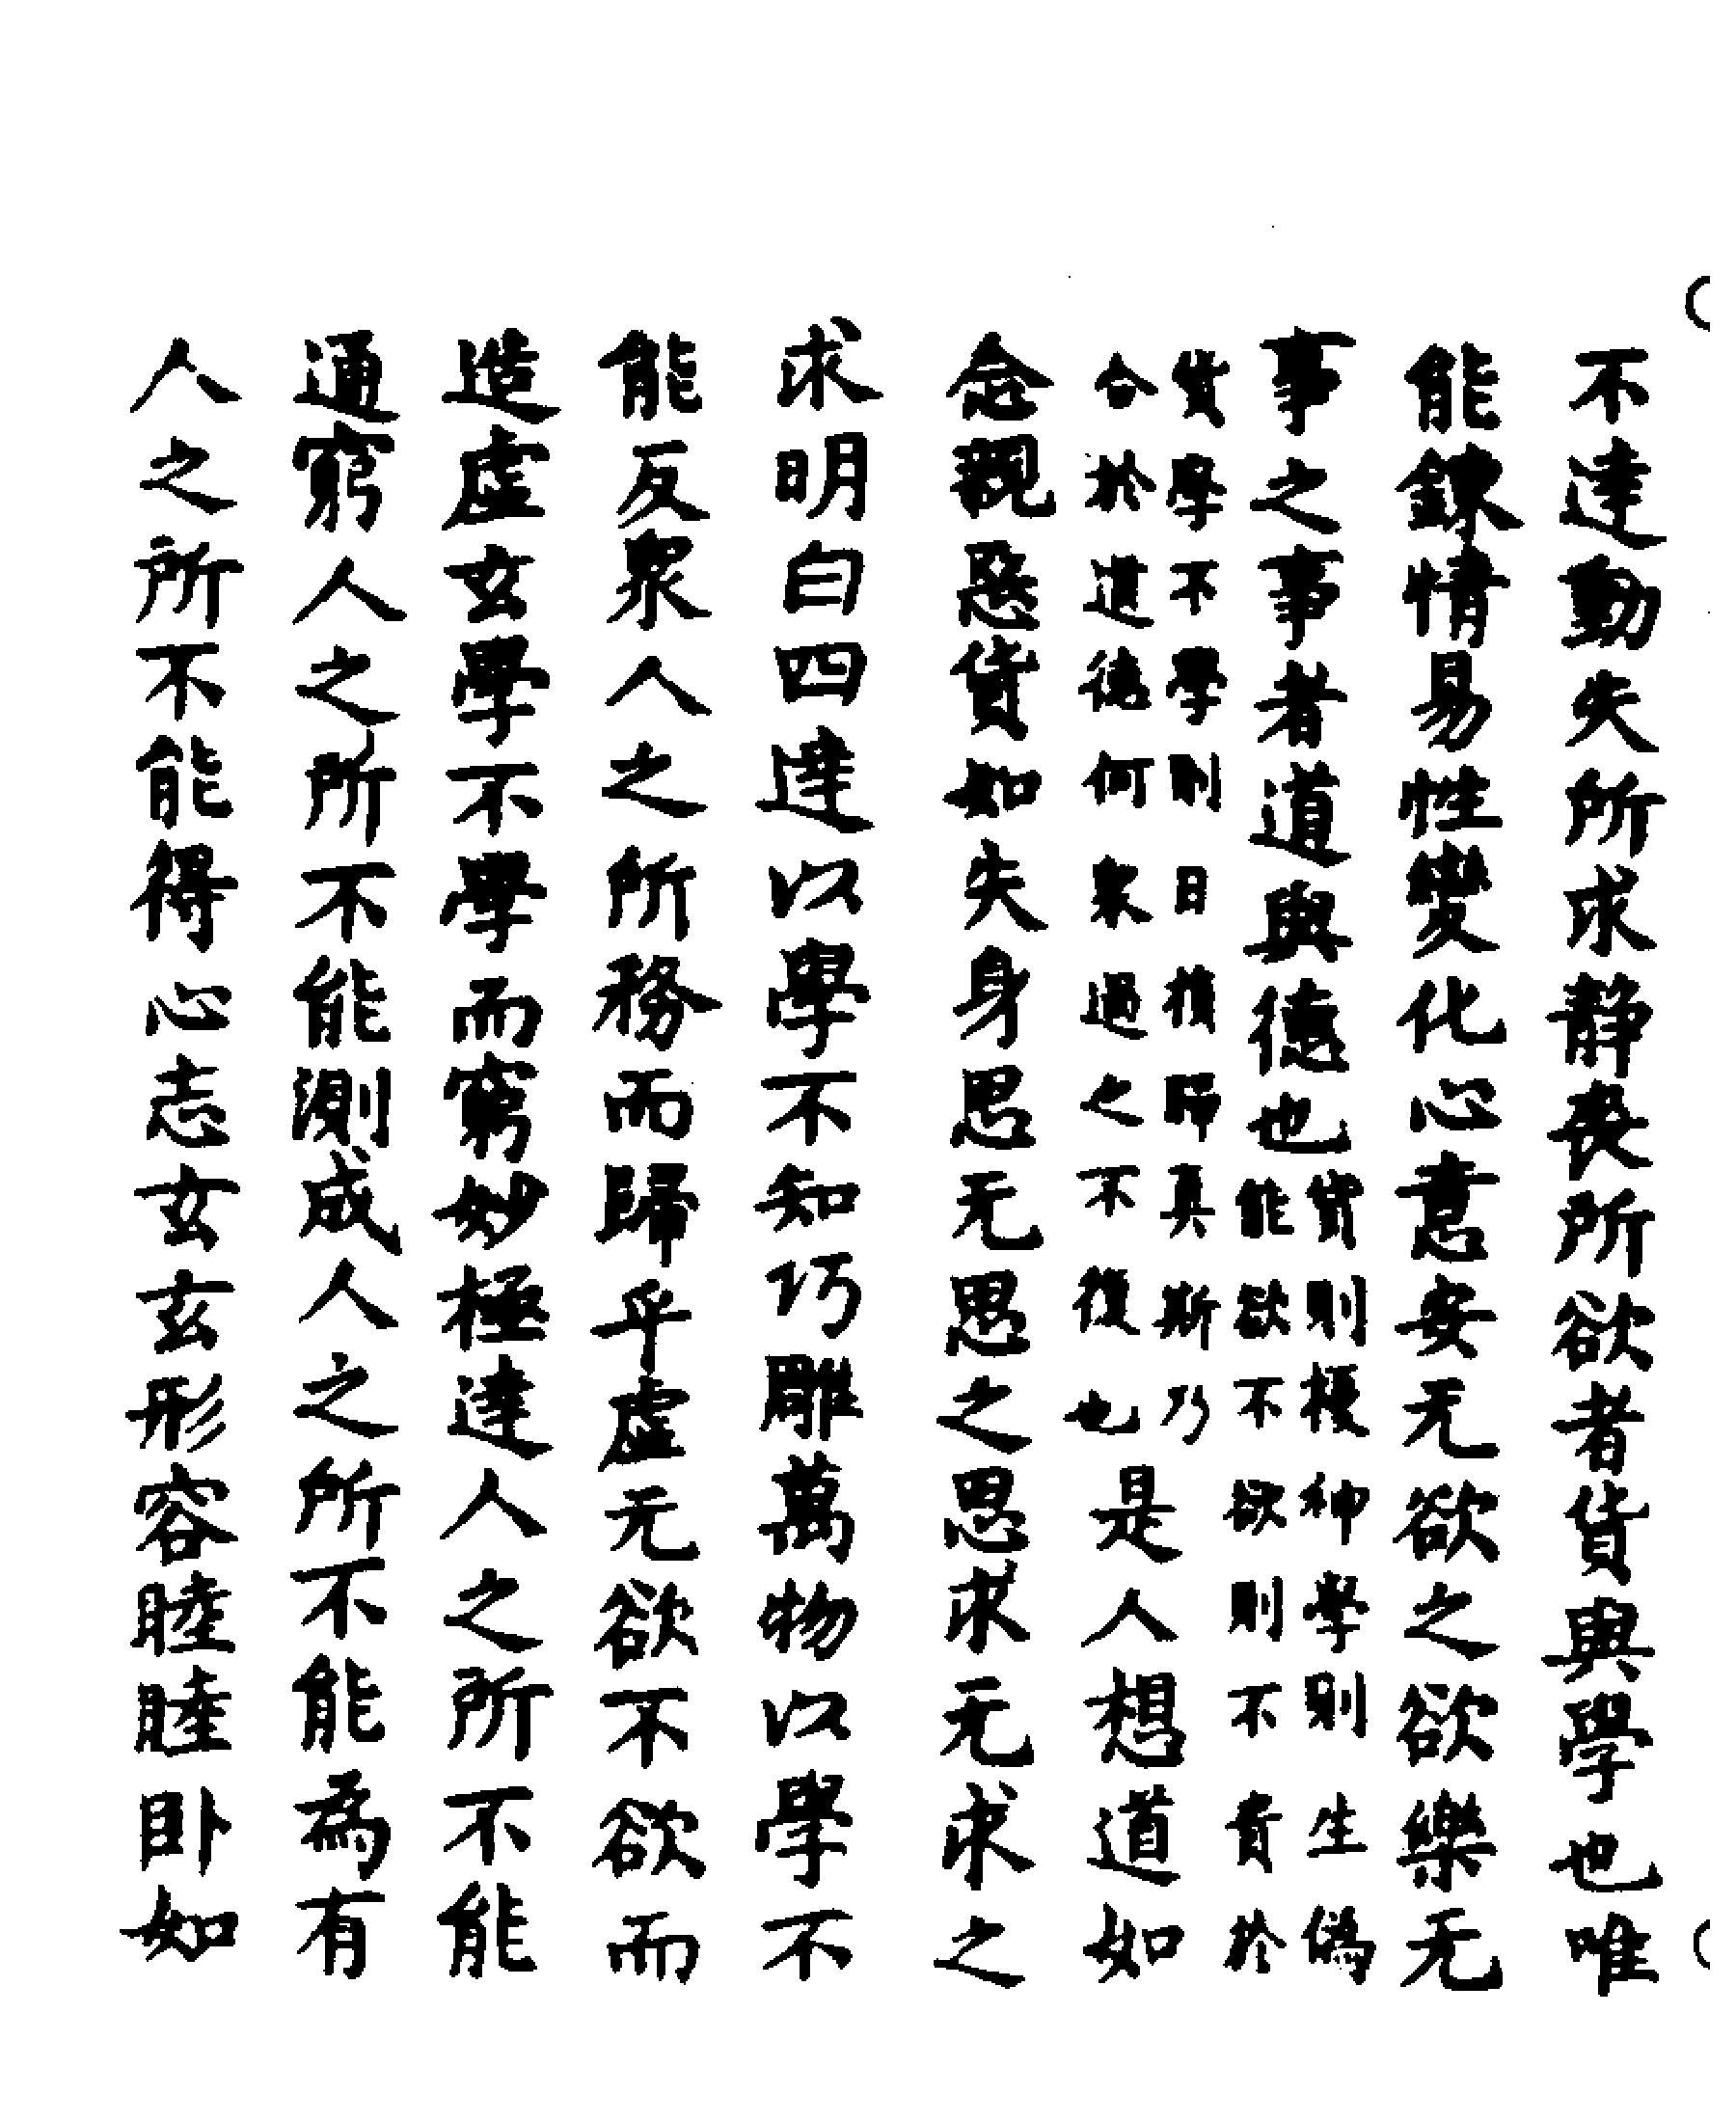 不達動失所求静喪所欲者貨與學也唯
能鍊情易性變化心意安无欲之欲樂无
事之事者道與德也
貨則擾神學則生偽
能欲不欲則不貴於
貨學不學則日損歸真斯乃
合於道德何衆過之不復也
是人想道如
念親惡貨如失身思无思之思求无求之
求明白四達以學不知巧雕萬物以學不
能反衆人之所務而歸乎虛无欲不欲而
造虛玄學不學而窮妙極達人之所不能
通窮人之所不能測成人之所不能為有
人之所不能得心志玄玄形容睦睦臥如